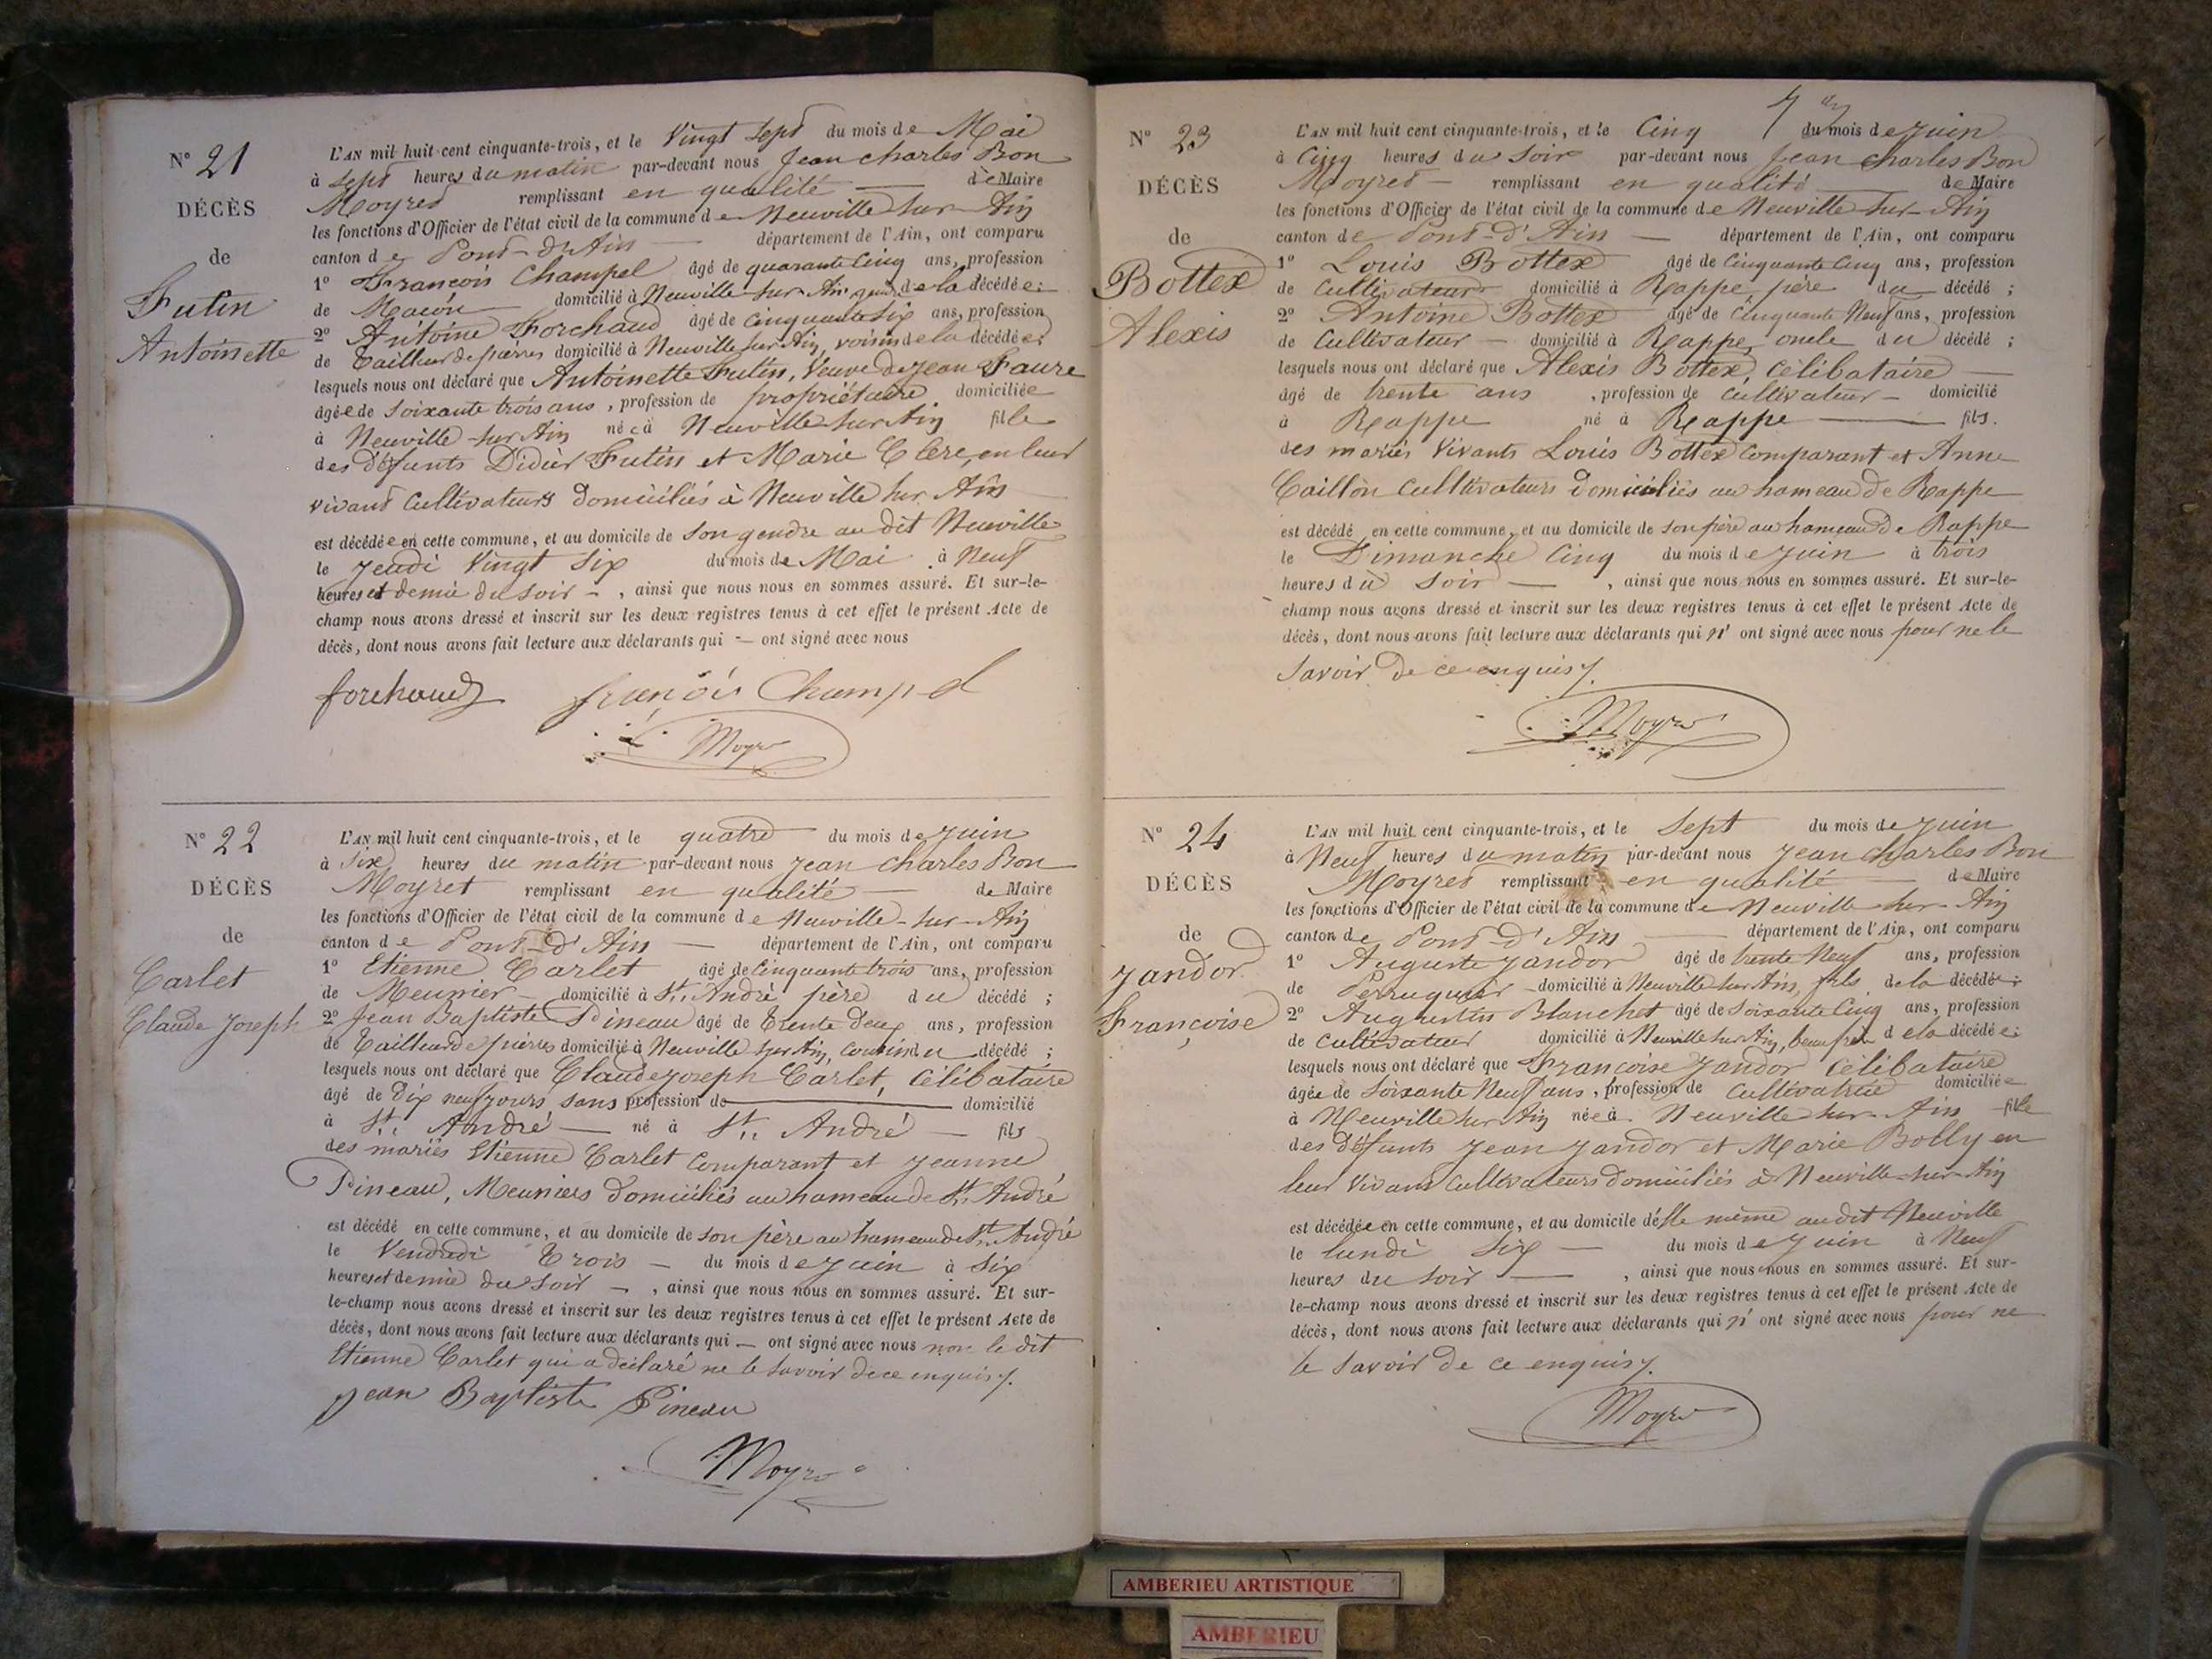 N° 21
DÉCÈS
de
Futin
Antoinette
L'AN mil huit cent cinquante-trois, et le Vingt Sept du mois de Mai
à Sept heures du matin par-devant nous Jean Charles Bon
Moyret remplissant en qualité de Maire
les fonctions d'Officier de l'état civil de la commune de Neuville sur Ain
canton de Pont-d'Ain département de l'Ain, ont comparu
1° François Champel âgé de quarante Cinq ans, profession
de Maçon domicilié à Neuville sur Ain gendre de la décédée;
2° Antoine Forchaud âgé de Cinquante Six ans, profession
de Tailleur de pierres domicilié à Neuville sur Ain, voisin de la décédée;
lesquels nous ont déclaré que Antoinette Futin, Veuve de Jean Faure
âgée de Soixante trois ans, profession de propriétaire domiciliée
à Neuville sur Ain née à Neuville sur Ain fille
des défunts Didier Futin et Marie Clerc, en leur
vivant Cultivateurs domiciliés à Neuville sur Ain
est décédée en cette commune, et au domicile de son gendre au dit Neuville
le Jeudi Vingt Six du mois de Mai à Neuf
heures et demie du Soir, ainsi que nous nous en sommes assuré. Et sur-le-
champ nous avons dressé et inscrit sur les deux registres tenus à cet effet le présent Acte de
décès, dont nous avons fait lecture aux déclarants qui — ont signé avec nous
forchaud françois Champel
Moyret
N° 22
DÉCÈS
de
Carlet
Claude Joseph
L'AN mil huit cent cinquante-trois, et le quatre du mois de Juin
à Six heures du matin par-devant nous Jean Charles Bon
Moyret remplissant en qualité de Maire
les fonctions d'Officier de l'état civil de la commune de Neuville-sur-Ain
canton de Pont-d'Ain département de l'Ain, ont comparu
1° Etienne Carlet âgé de Cinquante trois ans, profession
de Meunier domicilié à St. André père du décédé;
2° Jean Baptiste Pineau âgé de Trente deux ans, profession
de Tailleur de pierres domicilié à Neuville sur Ain, Cousin du décédé;
lesquels nous ont déclaré que Claude Joseph Carlet, Célibataire
âgé de Dix neuf jours sans profession de domicilié
à St. André né à St. André fils
des mariés Etienne Carlet Comparant et Jeanne
Pineau, Meuniers domiciliés au hameau de St. André
est décédé en cette commune, et au domicile de son père au hameau de St. André
le Vendredi Trois du mois de Juin à Six
heures et demie du Soir, ainsi que nous nous en sommes assuré. Et sur-
le-champ nous avons dressé et inscrit sur les deux registres tenus à cet effet le présent Acte de
décès, dont nous avons fait lecture aux déclarants qui — ont signé avec nous non le dit
Etienne Carlet qui a déclaré ne le savoir de ce enquis.
Jean Baptiste Pineau
Moyret
N° 23
DÉCÈS
de
Bottex
Alexis
L'AN mil huit cent cinquante-trois, et le Cinq du mois de Juin
à Cinq heures du Soir par-devant nous Jean Charles Bon
Moyret remplissant en qualité de Maire
les fonctions d'Officier de l'état civil de la commune de Neuville-sur-Ain
canton de Pont-d'Ain département de l'Ain, ont comparu
1° Louis Bottex âgé de Cinquante Cinq ans, profession
de Cultivateur domicilié à Rappe, père du décédé;
2° Antoine Bottex âgé de Cinquante Neuf ans, profession
de Cultivateur domicilié à Rappe, oncle du décédé;
lesquels nous ont déclaré que Alexis Bottex, Célibataire
âgé de trente ans, profession de Cultivateur domicilié
à Rappe né à Rappe fils.
des mariés Vivants Louis Bottex Comparant et Anne
Caillon Cultivateurs domiciliés au hameau de Rappe
est décédé en cette commune, et au domicile de son père au hameau de Rappe
le Dimanche Cinq du mois de Juin à trois
heures du Soir, ainsi que nous nous en sommes assuré. Et sur-le-
champ nous avons dressé et inscrit sur les deux registres tenus à cet effet le présent Acte de
décès, dont nous avons fait lecture aux déclarants qui n'ont signé avec nous pour ne le
Savoir de ce enquis.
Moyret
N° 24
DÉCÈS
de
Jandor
Françoise
L'AN mil huit cent cinquante-trois, et le Sept du mois de Juin
à Neuf heures du matin par-devant nous Jean Charles Bon
Moyret remplissant en qualité de Maire
les fonctions d'Officier de l'état civil de la commune de Neuville sur-Ain
canton de Pont-d'Ain département de l'Ain, ont comparu
1° Auguste Jandor âgé de trente Neuf ans, profession
de Perruquier domicilié à Neuville sur Ain, fils de la décédée;
2° Augustin Blanchet âgé de Soixante Cinq ans, profession
de Cultivateur domicilié à Neuville sur Ain, beau frère de la décédée;
lesquels nous ont déclaré que Françoise Jandor Célibataire
âgée de Soixante Neuf ans, profession de Cultivatrice domiciliée
à Neuville sur Ain née à Neuville sur Ain fille
des défunts Jean Jandor et Marie Bolly en
leur Vivant Cultivateurs domiciliés à Neuville-sur-Ain
est décédée en cette commune, et au domicile d'elle même au dit Neuville
le lundi Six du mois de Juin à Neuf
heures du Soir, ainsi que nous nous en sommes assuré. Et sur-
le-champ nous avons dressé et inscrit sur les deux registres tenus à cet effet le présent Acte de
décès, dont nous avons fait lecture aux déclarants qui n'ont signé avec nous pour ne
le Savoir de ce enquis.
Moyret
AMBERIEU ARTISTIQUE
AMBERIEU